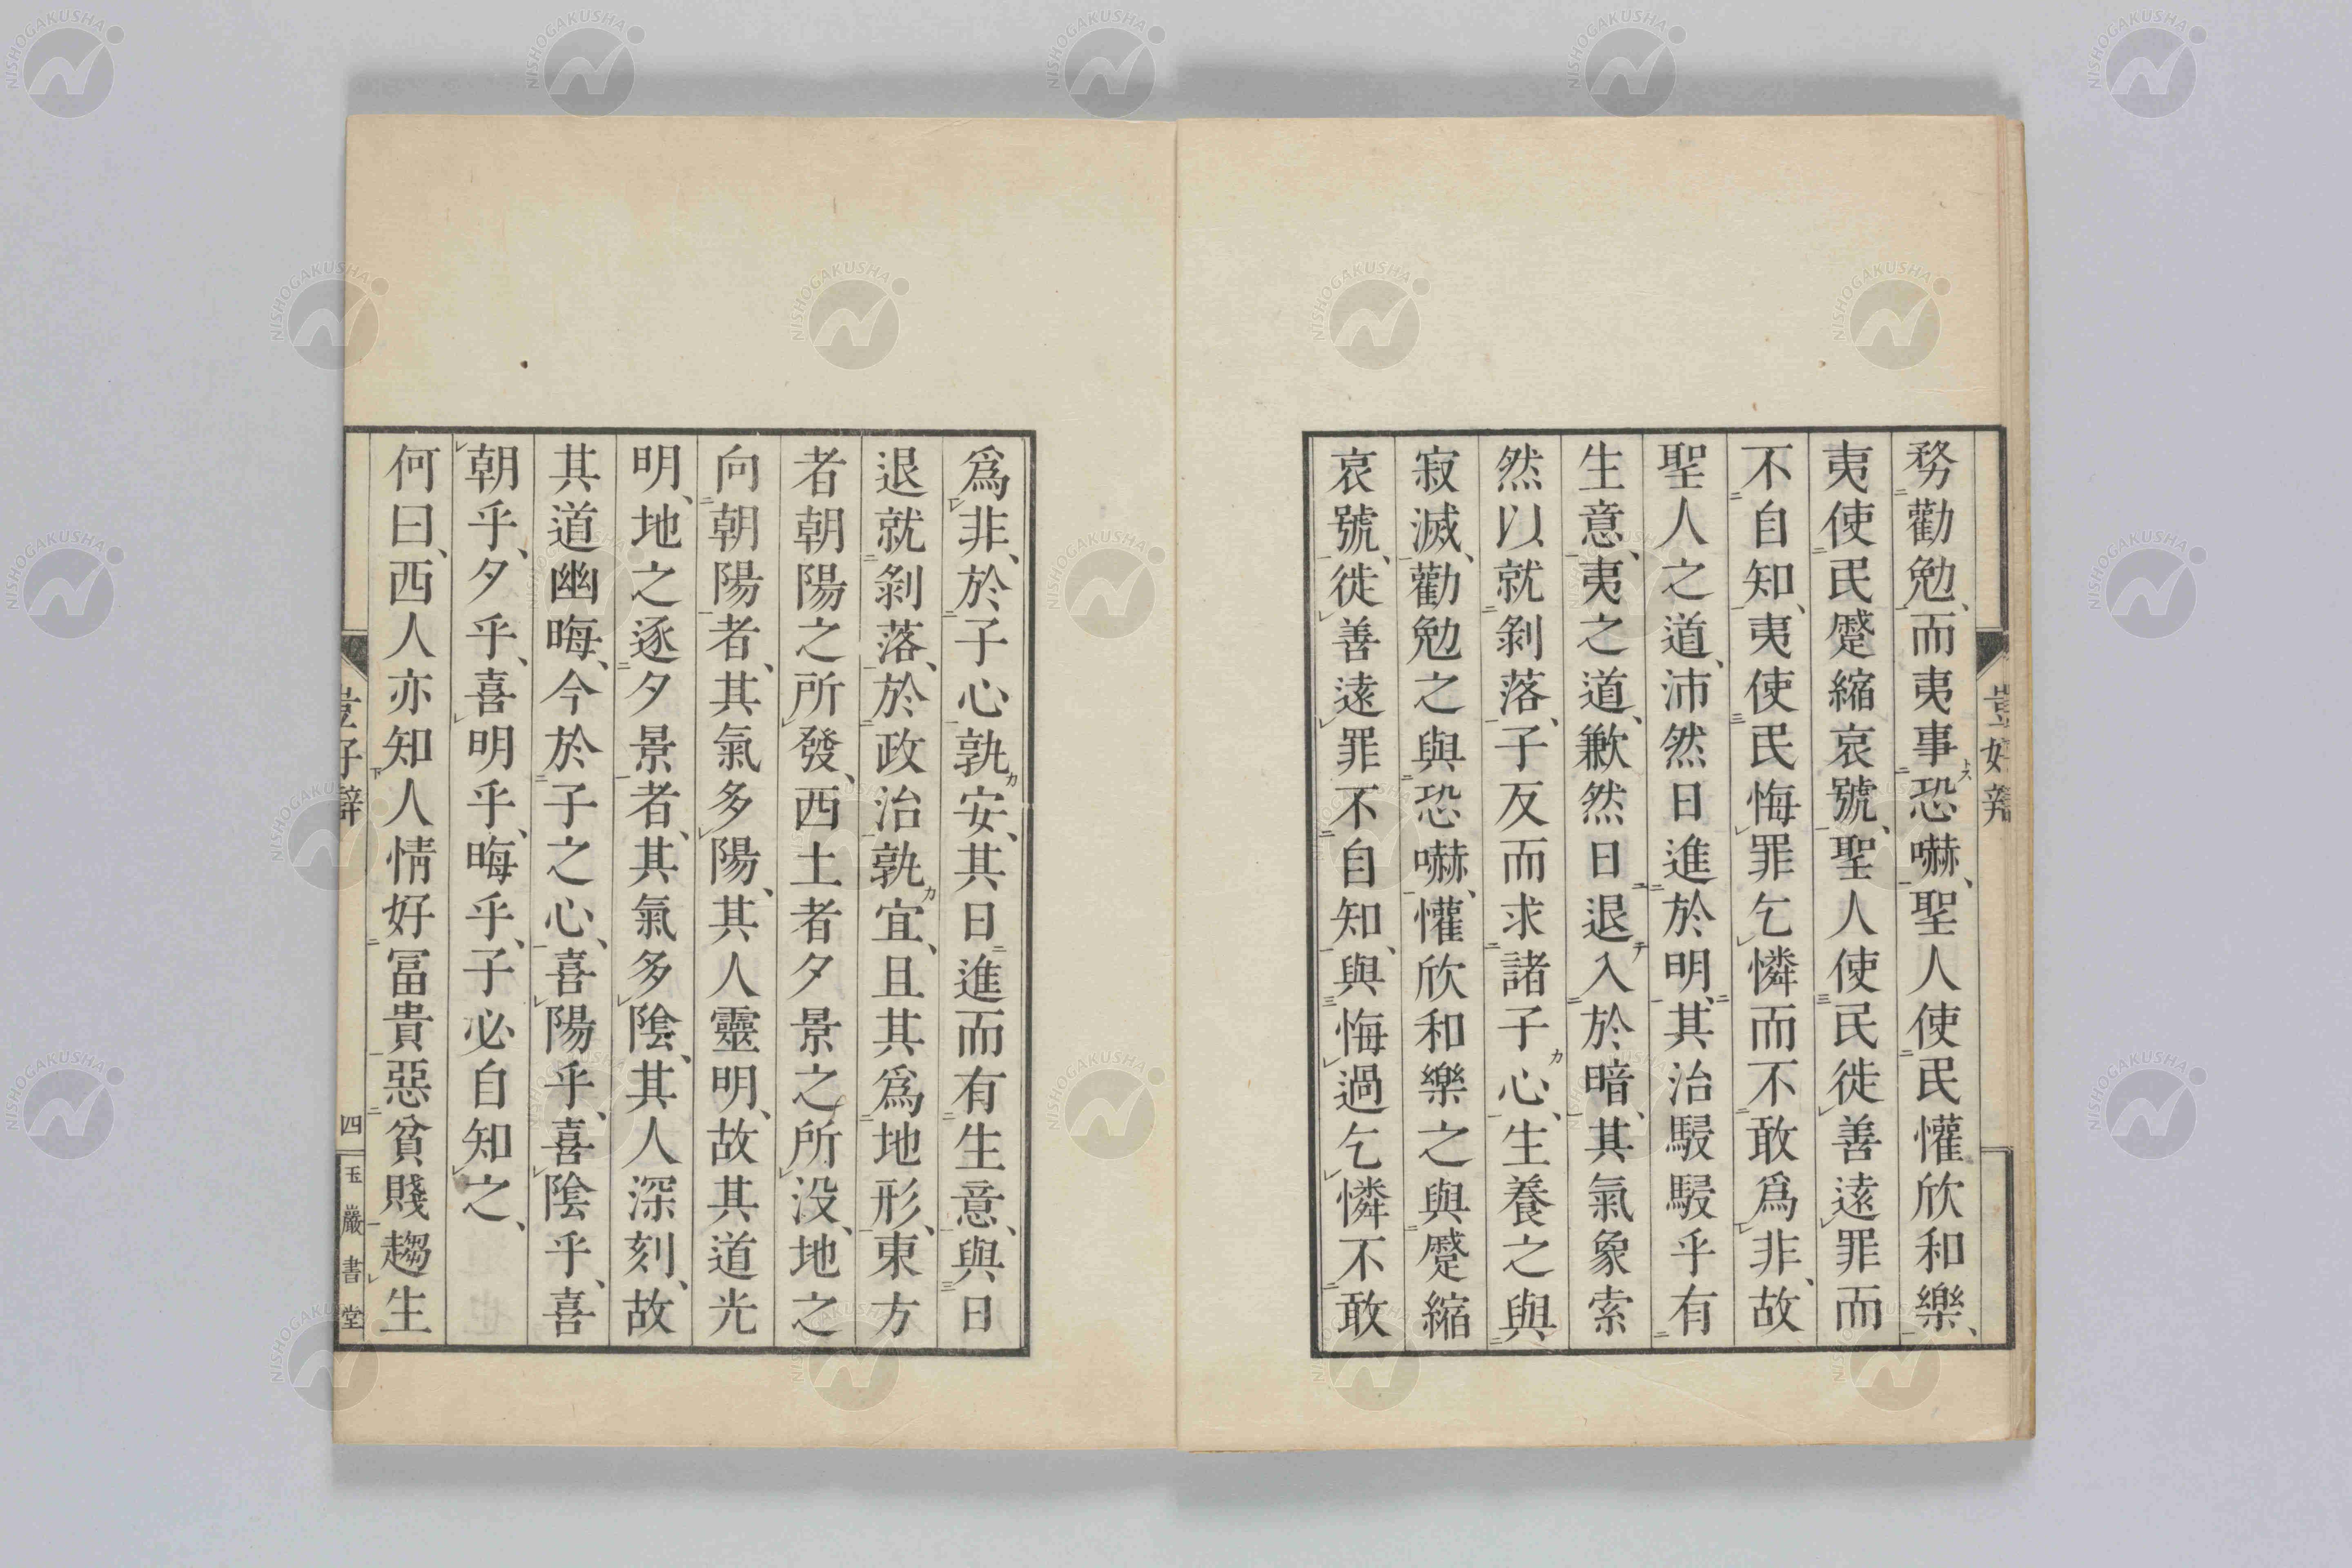 務勸勉、而夷事恐嚇、聖人使民懽欣和樂、
夷使民蹙縮哀號、聖人使民徙善遠罪而
不自知、夷使民悔罪乞憐而不敢爲非、故
聖人之道、沛然日進於明、其治駸駸乎有
生意、夷之道、歉然日退入於暗、其氣象索
然以就剝落、子反而求諸子心、生養之與
寂滅、勸勉之與恐嚇、懽欣和樂之與蹙縮
哀號、徙善遠罪不自知、與悔過乞憐不敢
爲非、於子心孰安、其日進而有生意、與日
退就剝落、於政治孰宜、且其爲地形、東方
者朝陽之所發、西土者夕景之所没、地之
向朝陽者、其氣多陽、其人靈明、故其道光
明、地之逐夕景者、其氣多陰、其人深刻、故
其道幽晦、今於子之心、喜陽乎、喜陰乎、喜
朝乎、夕乎、喜明乎、晦乎、子必自知之、
何曰、西人亦知人情好冨貴惡貧賤趨生
豈好辯
四
玉巖書堂
NISHOGAKUSHA